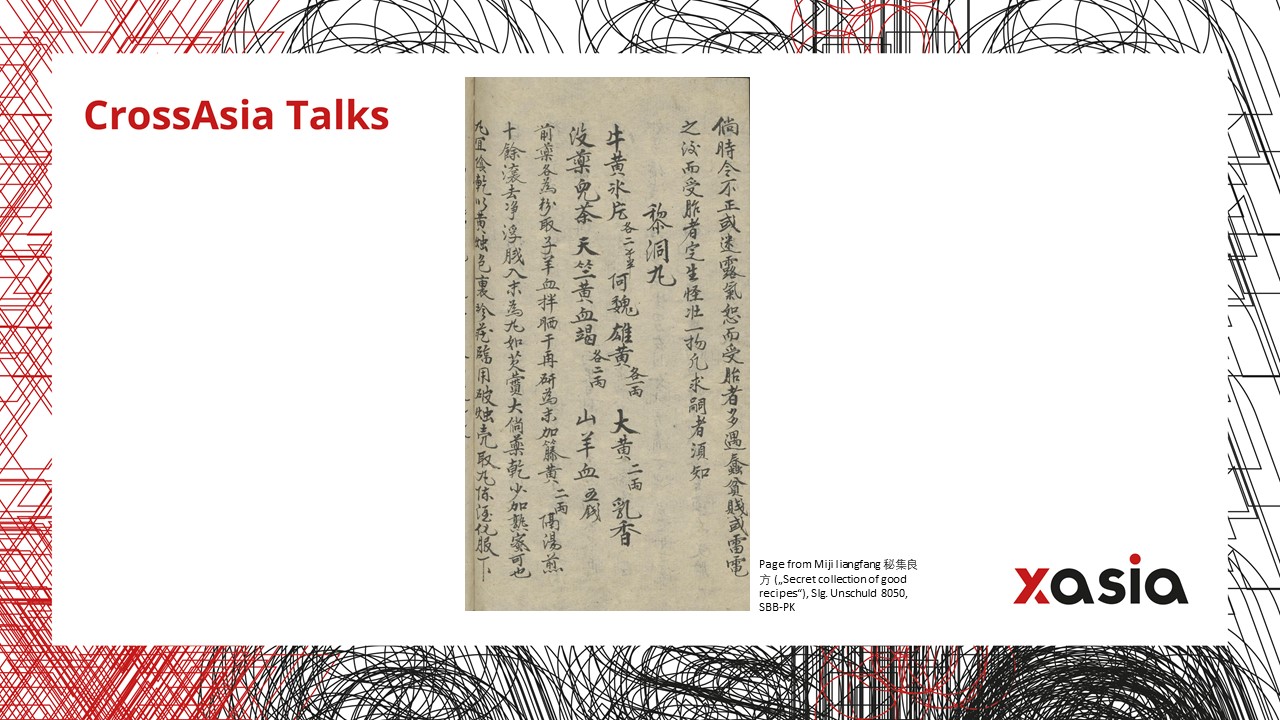 CrossAsia Talks
倘時令不正或迷露氣恕而受胎者多遇蠢貧賤或雷電
之淡而受胎者定生怪壯一物凡求嗣者須知
黎洞丸
牛黃氷片各二 何魏雄黃各兩 大黃二兩 乳香
没藥兒茶天竺黃血竭各二兩 山羊血五錢
前藥各為粉取子羊血拌晒干再研為末加籐黃二兩隔湯煎
十餘滾去净浮膩入末為丸如芡實大倘藥乾少加熟蜜可也
丸宜陰乾以黃蚀色裹珍藏臨用破蚀壳取丸陈酒化服下
Page from Miji liangfang 秘集良
方 („Secret collection of good
recipes“), Slg. Unschuld 8050,
SBB-PK
xasia